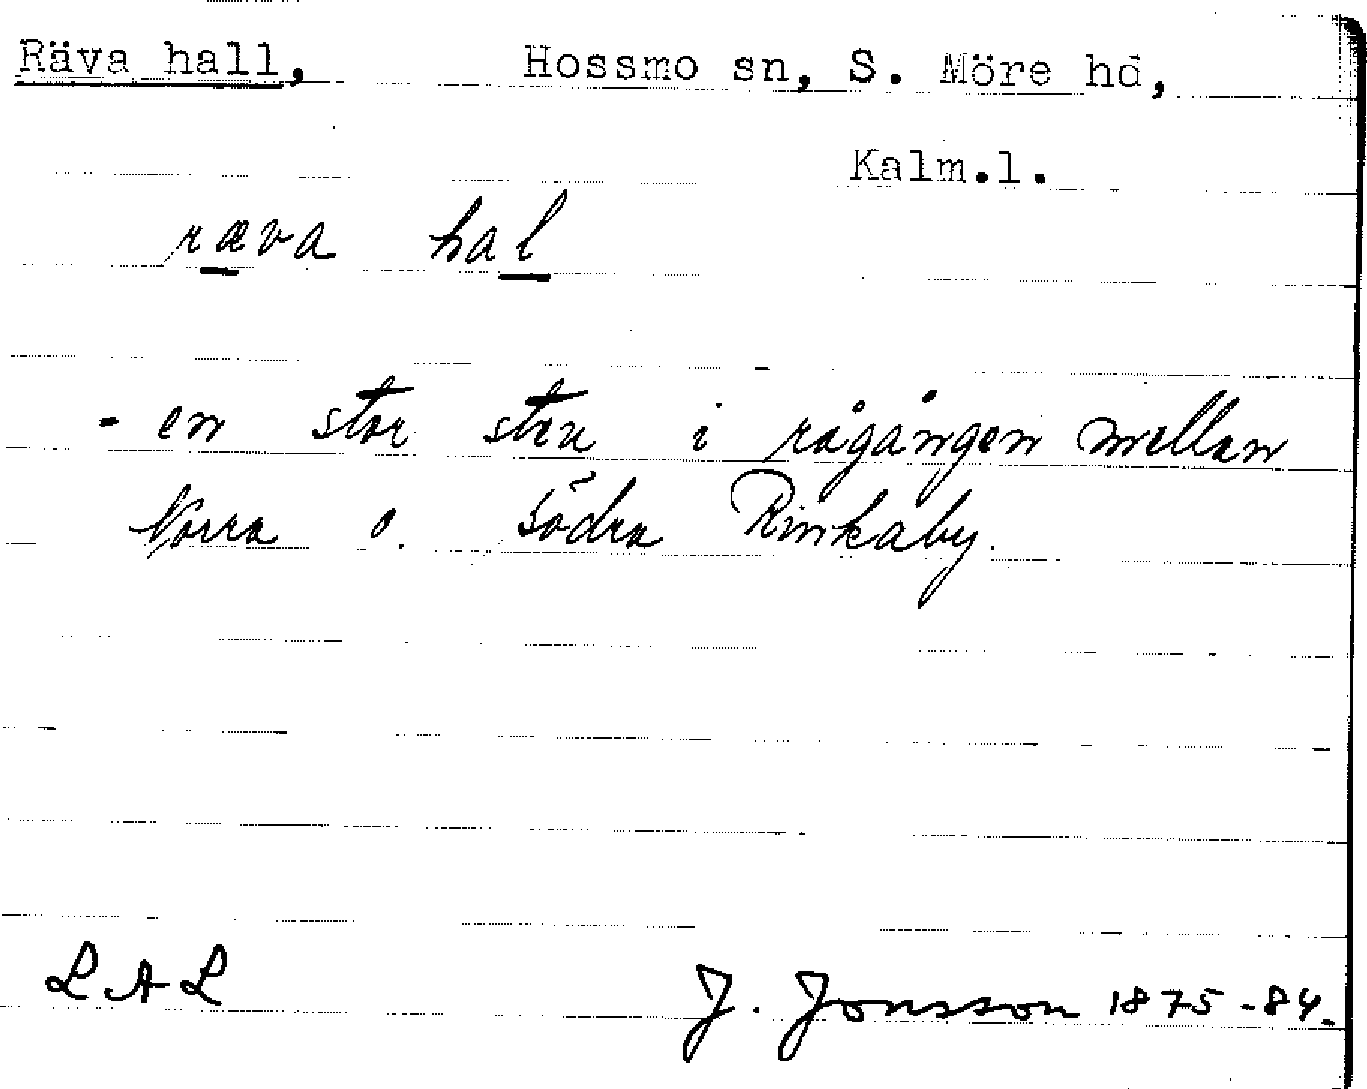 Räva hall, Hossmo sn, S. Möre hd,
Kalm.l.
ræva hal
- en stor sten i rågången mellan
Norra o. Södra Rinkaby.
LAL J. Jonsson 1875-84.